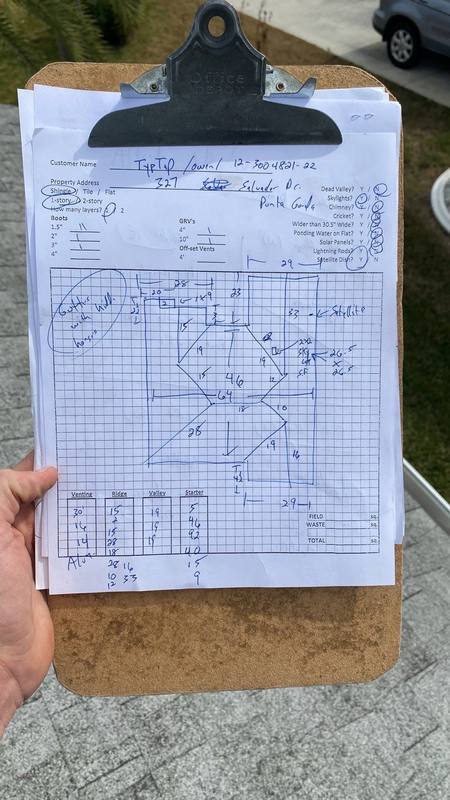 Office DEPOT
Customer Name TypTap / owen / 12-3004821-22
Property Address 327 Salvador Dr.
Punta Gorda
Shingle / Tile / Flat
1-story / 2-story
How many layers? 1 2
Boots
1.5"
2"
3"
4"
GRV's
4"
10"
Off-set Vents
4"
Dead Valley? Y / N
Skylights? Y / N
Chimney? Y / N
Cricket? Y / N
Wider than 30.5" Wide? Y / N
Ponding Water on Flat? Y / N
Solar Panels? Y / N
Lightning Rods? Y / N
Satellite Dish? Y N
29
28
20
23
33
Satellite
Gutter with
15
19
19
26.5
x
26.5
SF
15
46
12
64
18
10
28
19
16
29
Venting Ridge Valley Starter
30 15 19 5
16 2 19 46
14 28 19 92
18 40
28 16 15
10 33 9
12
FIELD SQ.
WASTE SQ.
TOTAL SQ.